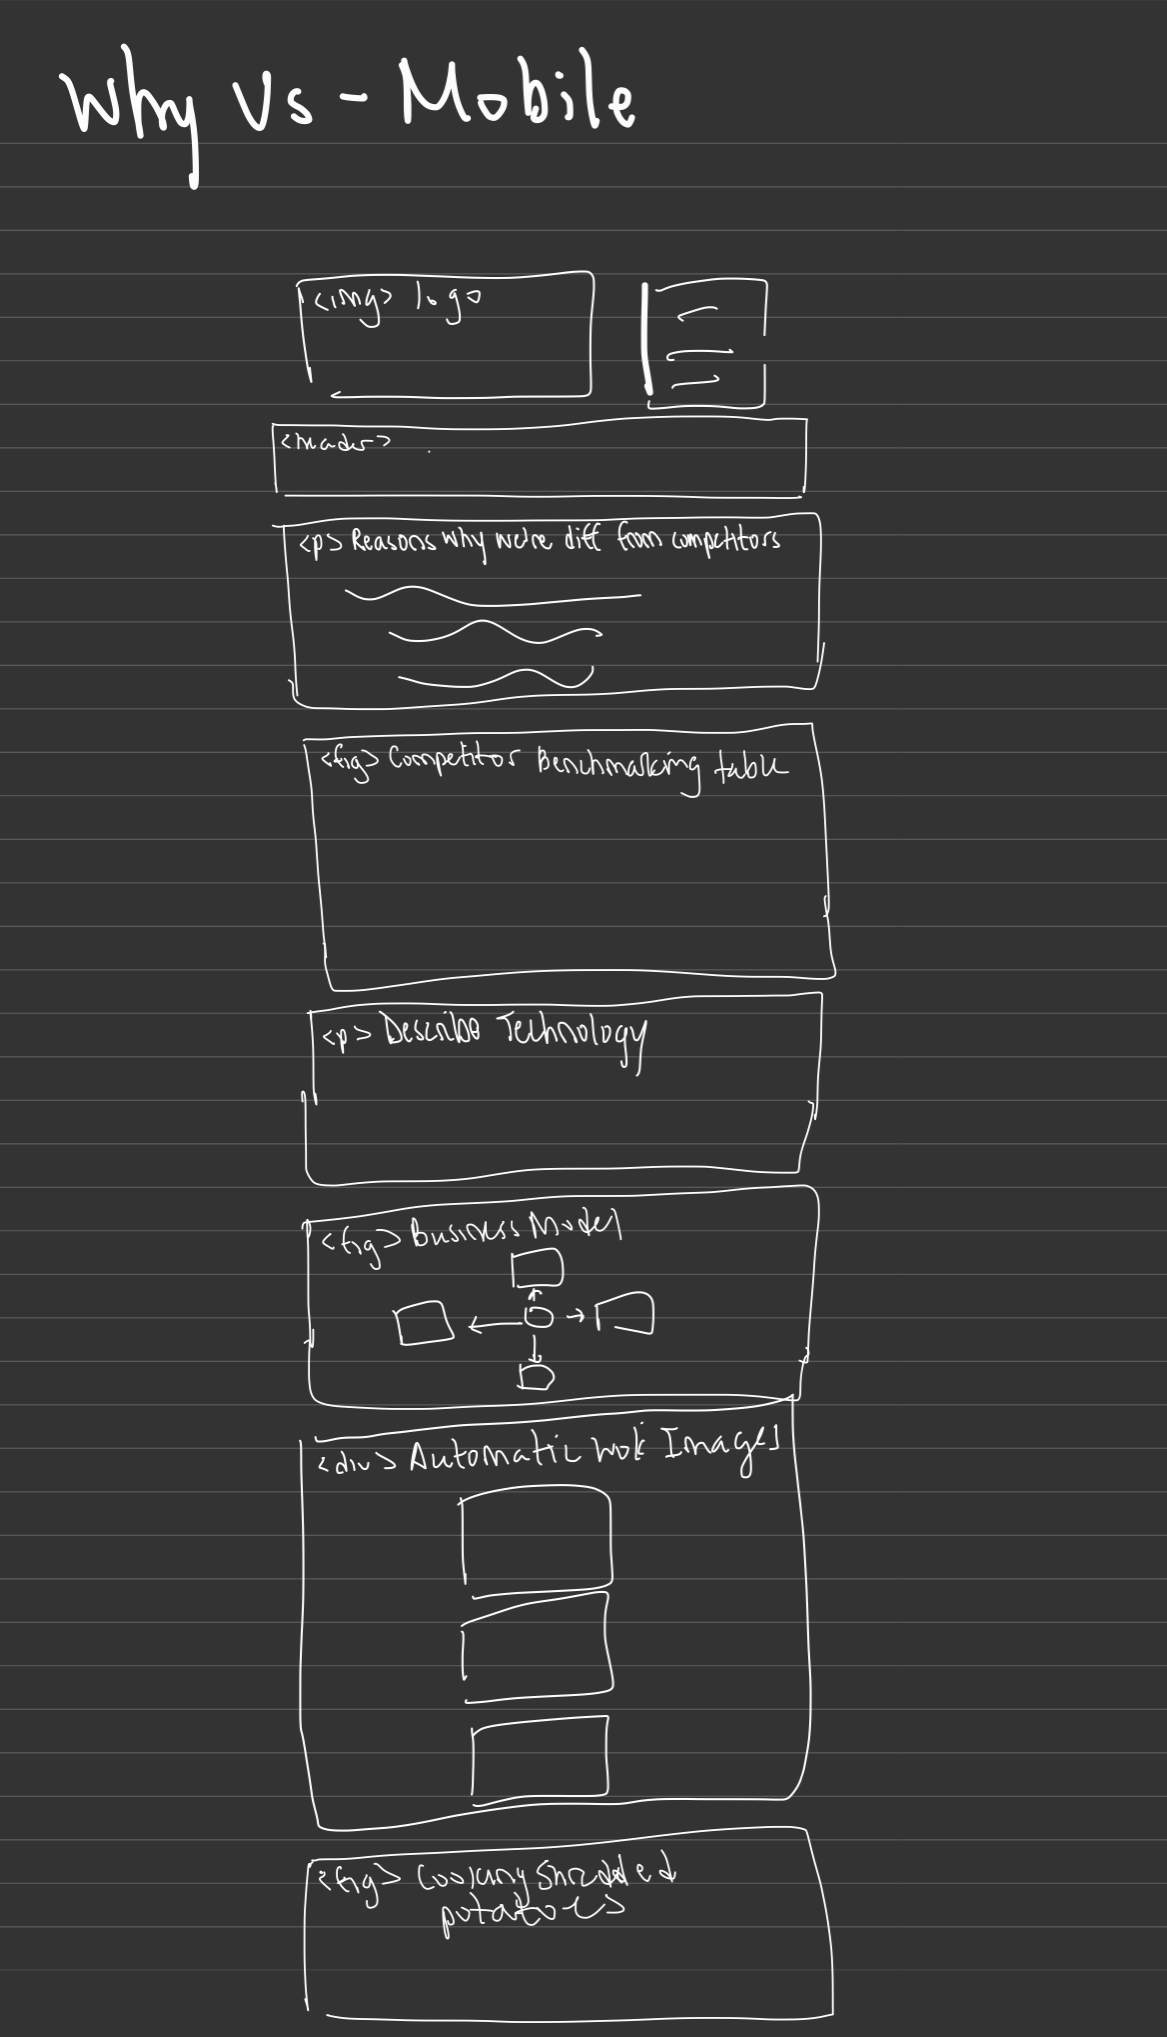 Why Us - Mobile
<img> logo
<header>
<p> Reasons why we're diff from competitors
<fig> Competitor Benchmarking table
<p> Describe Technology
<fig> Business Model
<div> Automatic wok Images
<fig> Cooking Shredded
potatoes